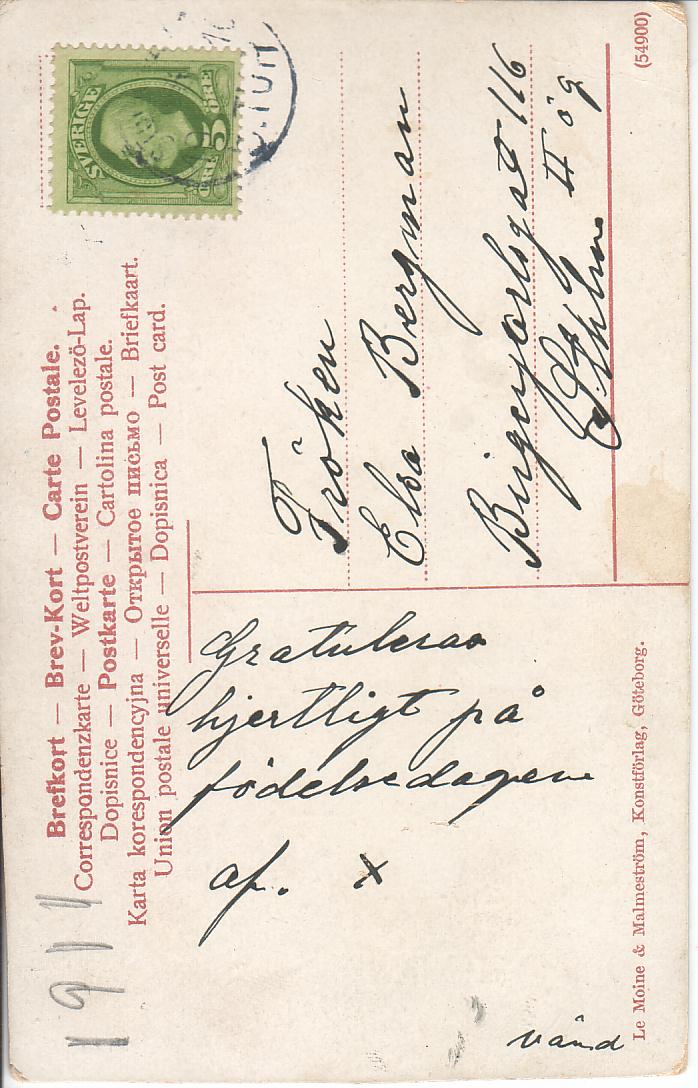 Brefkort — Brev-Kort — Carte Postale.
Correspondenzkarte — Weltpostverein — Levelezö-Lap.
Dopisnice — Postkarte — Cartolina postale.
Karta korespondencyjna — Открытое письмо — Briefkaart.
Union postale universelle — Dopisnica — Post card.
SVERIGE
5
ÖRE ÖRE
1914
Gratuleras
hjertligt på
födelsedagen
af. x
vänd
Fröken
Elsa Bergman
Birgerjarlsgat 116
II ög
Sthlm
Le Moine & Malmeström, Konstförlag, Göteborg.
(54900)